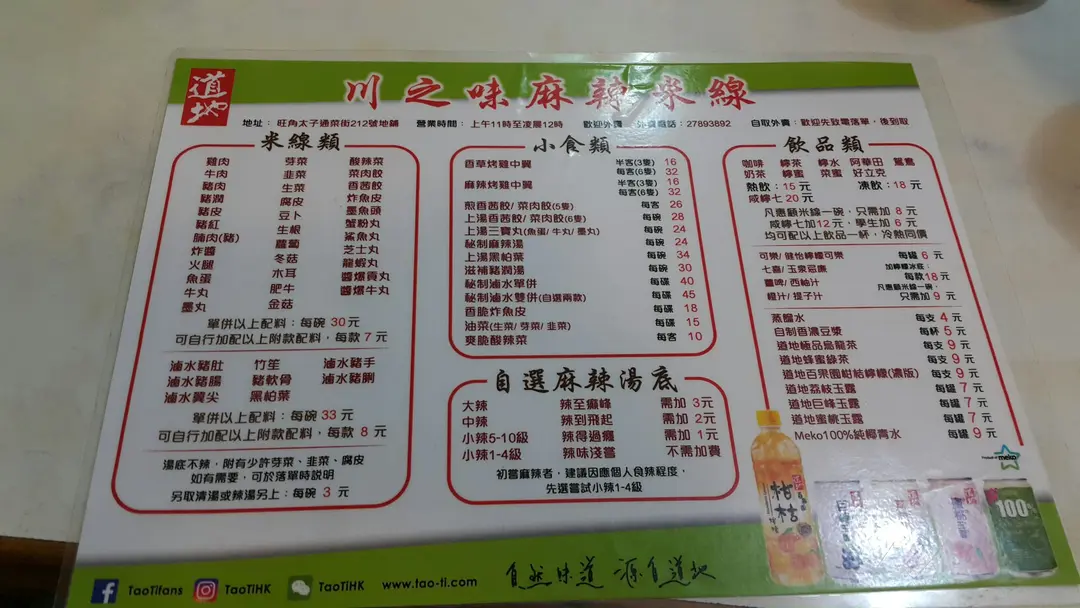 道地
川之味麻辣米線
地址： 旺角太子通菜街212號地鋪 營業時間： 上午11時至凌晨12時 歡迎外賣 外賣電話：27893892 自取外賣：歡迎先致電落單，後到取
米線類
雞肉 芽菜 酸辣菜
牛肉 韭菜 菜肉餃
豬肉 生菜 香茜餃
豬潤 腐皮 炸魚皮
豬皮 豆卜 墨魚頭
豬紅 生根 蟹粉丸
腩肉(豬) 蘿蔔 鯊魚丸
炸醬 冬菇 芝士丸
火腿 木耳 龍蝦丸
魚蛋 肥牛 醬爆貢丸
牛丸 金菇 醬爆牛丸
墨丸
單併以上配料：每碗 30 元
可自行加配以上附款配料，每款 7 元
滷水豬肚 竹笙 滷水豬手
滷水豬腸 豬軟骨 滷水豬脷
滷水翼尖 黑柏葉
單併以上配料：每碗 33 元
可自行加配以上附款配料，每款 8 元
湯底不辣，附有少許芽菜、韭菜、腐皮
如有需要，可於落單時說明
另取清湯或辣湯另上：每碗 3 元
小食類
香草烤雞中翼 半客(3隻) 16
每客(6隻) 32
麻辣烤雞中翼 半客(3隻) 16
每客(6隻) 32
煎香茜餃/ 菜肉餃(5隻) 每客 26
上湯香茜餃/ 菜肉餃(6隻) 每碗 28
上湯三寶丸(魚蛋/ 牛丸/ 墨丸) 每碗 24
秘制麻辣湯 每碗 24
上湯黑柏葉 每碗 34
滋補豬潤湯 每碗 30
秘制滷水單併 每碟 40
秘制滷水雙併(自選兩款) 每碟 45
香脆炸魚皮 每碟 18
油菜(生菜/ 芽菜/ 韭菜) 每碟 15
爽脆酸辣菜 每客 10
自選麻辣湯底
大辣 辣至癲峰 需加 3元
中辣 辣到飛起 需加 2元
小辣5-10級 辣得過癮 需加 1元
小辣1-4級 辣味淺嘗 不需加費
初嘗麻辣者，建議因應個人食辣程度，
先選嘗試小辣1-4級
飲品類
咖啡 檸茶 檸水 阿華田 鴛鴦
奶茶 檸蜜 菜蜜 好立克
熱飲：15 元 凍飲：18 元
咸檸七 20元
凡惠顧米線一碗，只需加 8 元
咸檸七加12元，學生加 6 元
均可配以上飲品一杯，冷熱同價
可樂/ 健怡檸檬可樂 每罐 6 元
七喜/ 玉泉忌廉 加檸檬冰底：
薑啤/ 西柚汁 每款18 元
橙汁/ 提子汁 凡惠顧米線一碗，
只需加 9 元
蒸餾水 每支 4 元
自制香濃豆漿 每杯 5 元
道地極品烏龍茶 每支 9 元
道地蜂蜜綠茶 每支 9 元
道地百果園柑桔檸檬(濃版) 每支 9 元
道地荔枝玉露 每罐 7 元
道地巨峰玉露 每罐 7 元
道地蜜桃玉露 每罐 7 元
Meko100%純椰青水 每罐 9 元
meko
柑桔
100%
TaoTifans TaoTiHK TaoTiHK www.tao-ti.com 自然味道 源自道地